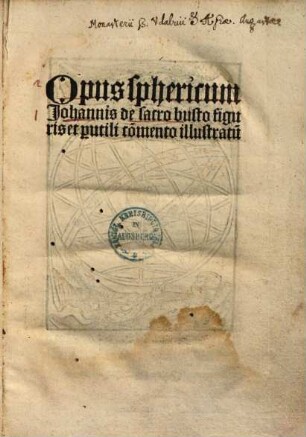 Monasterii S. Udalrici & Afrae Augustae
Opus sphericum
Johannis de sacro busto figu
ris et ꝑutili cōmento illustratū
IN
AUGSBURG